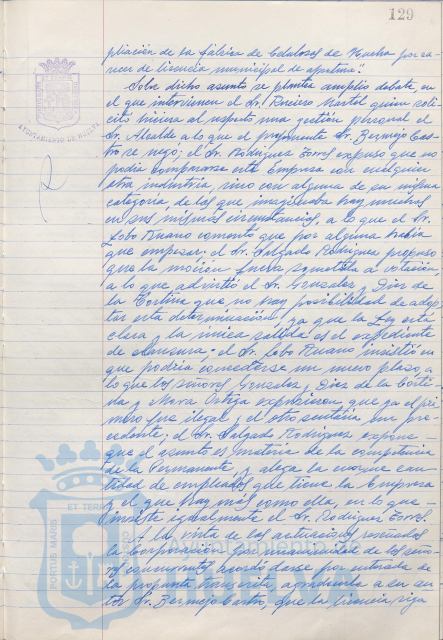 129
pliación de la fábrica de Celulosas de Huelva por ca-
recer de licencia municipal de apertura".
Sobre dicho asunto se plantea amplio debate, en
el que intervienen el Sr. Rociero Martel quien soli-
citó hiciera al respecto una gestión personal el
Sr. Alcalde a lo que el proponente Sr. Bermejo Cas-
tro se negó; el Sr. Rodriguez Torres expuso que no
podia compararse esta Empresa con cualquier
otra industria, sino con alguna de su misma
categoria, de las que imaginaba hay muchas
en sus mismas circunstancias, a lo que el Sr.
Lobo Ruano comentó que por alguna habia
que empezar; el Sr. Salgado Rodriguez propuso
que la moción fuera sometida a votación
a lo que advirtió el Sr. Gonzalez y Diez de
la Cortina que no hay posibilidad de adop-
tar esta determinación, ya que la Ley está
clara y la unica salida es el expediente
de clausura; el Sr. Lobo Ruano insistió en
que podria concederse un nuevo plazo, a
lo que los señores Gonzalez y Diez de la Corti-
na y Mora Ortiga expresaron que ya el pri-
mero fue ilegal y el otro sentaria un pre-
cedente; el Sr. Salgado Rodriguez expone
que el asunto es materia de la competencia
de la Permanente, y alega la enorme can-
tidad de empleados que tiene la Empresa
y el que hay más como ella, en lo que in-
siste igualmente el Sr. Rodriguez Torres.
A la vista de las actuaciones reseñadas
la Corporación por unanimidad de los seño-
res concurrentes acordó darse por enterada de
la propuesta transcrita, agradecerla a su au-
tor Sr. Bermejo Castro, que la licencia siga
AYUNTAMIENTO DE HUELVA
PORTUS MARIS ET TERRAE
Ayuntamiento de
HUELVA